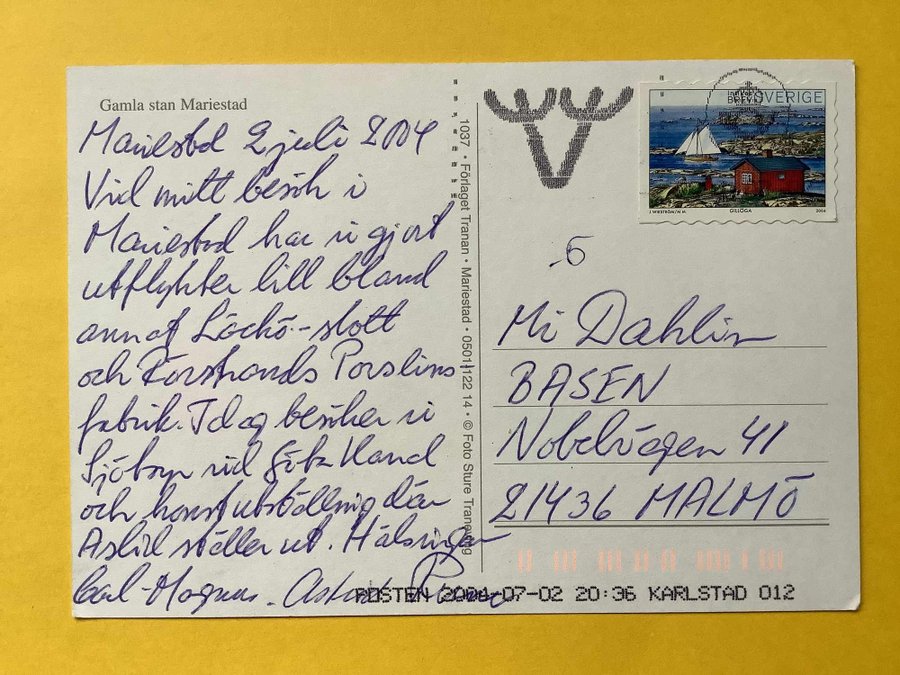 Gamla stan Mariestad
Mariestad 2 juli 2004
Vid mitt besök i
Mariestad har vi gjort
utflykter till bland
annat Läckö-slott
och Rörstrands Porslins
fabrik. Idag besöker vi
Sjötorp vid Göta Kanal
och konstutställning där
Astrid ställer ut. Hälsningar
Carl-Magnus. Astrid
1037 • Förlaget Tranan • Mariestad • 0501-122 14 • © Foto Sture Traneving
SVERIGE
BREV
J.WIESTRÖM/M.M.
GILLÖGA
2004
6
Mi Dahlin
BASEN
Nobelvägen 41
21436 MALMÖ
POSTEN 2004-07-02 20:36 KARLSTAD 012